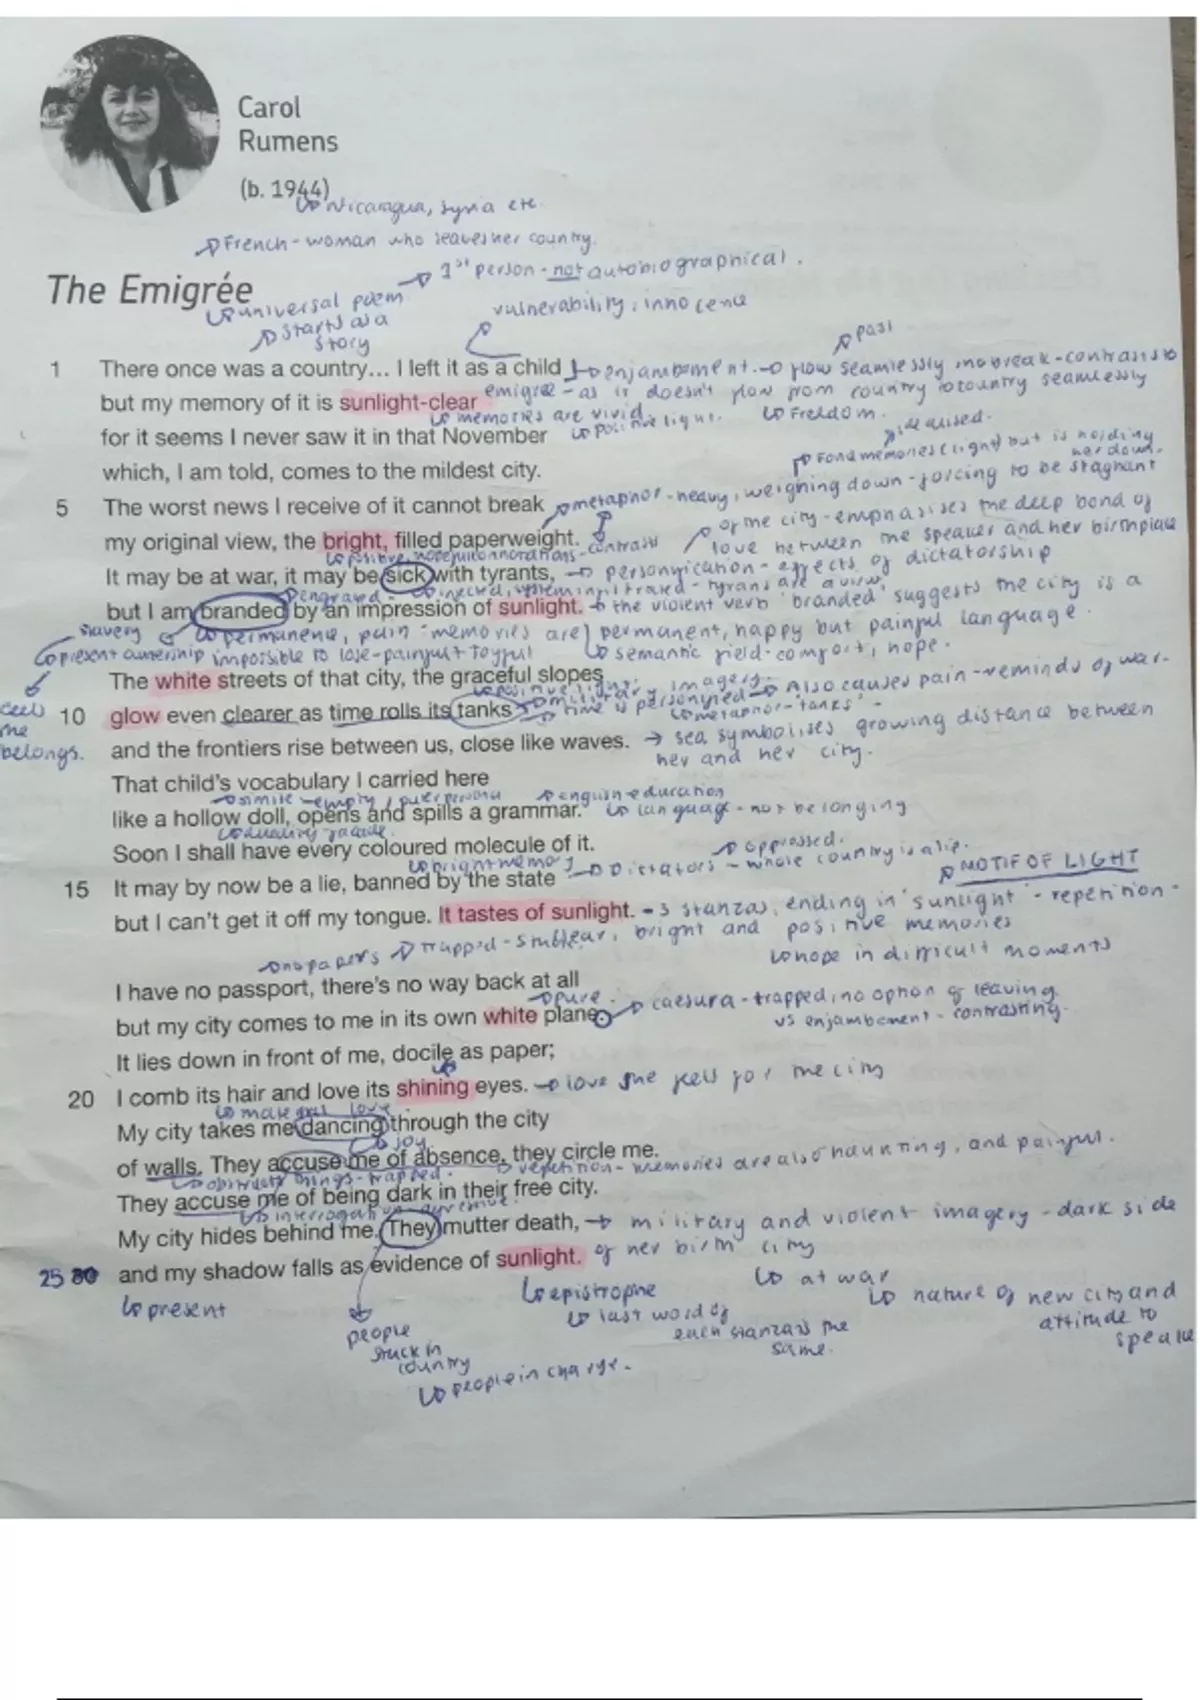 Carol
Rumens
(b. 1944)
↳ Nicaragua, Syria etc.
French - woman who leaves her country.
1st person - not autobiographical.
The Emigrée
universal poem
vulnerability, innocence
starts as a
story
past
1 There once was a country... I left it as a child
enjambement. → flow seamlessly, no break - contrasts to
but my memory of it is sunlight-clear
emigrée - as it doesn't flow from country to country seamlessly
memories are vivid
positive light.
Freedom.
idealised.
for it seems I never saw it in that November
which, I am told, comes to the mildest city.
Fond memories (light) but is holding
her down.
5 The worst news I receive of it cannot break
metaphor - heavy, weighing down - forcing to be stagnant
my original view, the bright, filled paperweight.
of the city - emphasises the deep bond of
love between the speaker and her birthplace
positive connotations - contrasts
It may be at war, it may be sick with tyrants,
personification - effects of dictatorship
engraved - infected, system infiltrated - tyrants are a virus
but I am branded by an impression of sunlight.
the violent verb 'branded' suggests the city is a
slavery
permanence, pain - memories are permanent, happy but painful language.
present ownership
impossible to lose - painful + joyful
semantic field - comfort, hope.
The white streets of that city, the graceful slopes
feels
she
belongs.
positive light
military imagery.
Also causes pain - reminds of war.
10 glow even clearer as time rolls its tanks
time is personified
metaphor - 'tanks'
and the frontiers rise between us, close like waves.
sea symbolises growing distance between
her and her city.
That child's vocabulary I carried here
simile - empty, outer persona
English education
like a hollow doll, opens and spills a grammar.
language - not belonging
duality facade.
Soon I shall have every coloured molecule of it.
oppressed.
bright memory
15 It may by now be a lie, banned by the state
Dictators - whole country is a lie.
MOTIF OF LIGHT
but I can't get it off my tongue. It tastes of sunlight.
- 3 stanzas, ending in 'sunlight' - repetition -
bright and positive memories
hope in difficult moments
no papers
trapped - stuck
I have no passport, there's no way back at all
pure.
but my city comes to me in its own white plane.
caesura - trapped, no option of leaving
vs enjambement - contrasting.
It lies down in front of me, docile as paper;
20 I comb its hair and love its shining eyes.
love she feels for the city
love
My city takes me dancing through the city
joy.
of walls. They accuse me of absence, they circle me.
repetition - memories are also haunting, and painful.
things - trapped.
They accuse me of being dark in their free city.
interrogation
My city hides behind me. They mutter death,
military and violent imagery - dark side
of her birth city
25 30 and my shadow falls as evidence of sunlight.
present
epistrophe
at war
last word of
each stanza is the
same.
nature of new city and
attitude to
speaker
people
stuck in
country
people in charge.